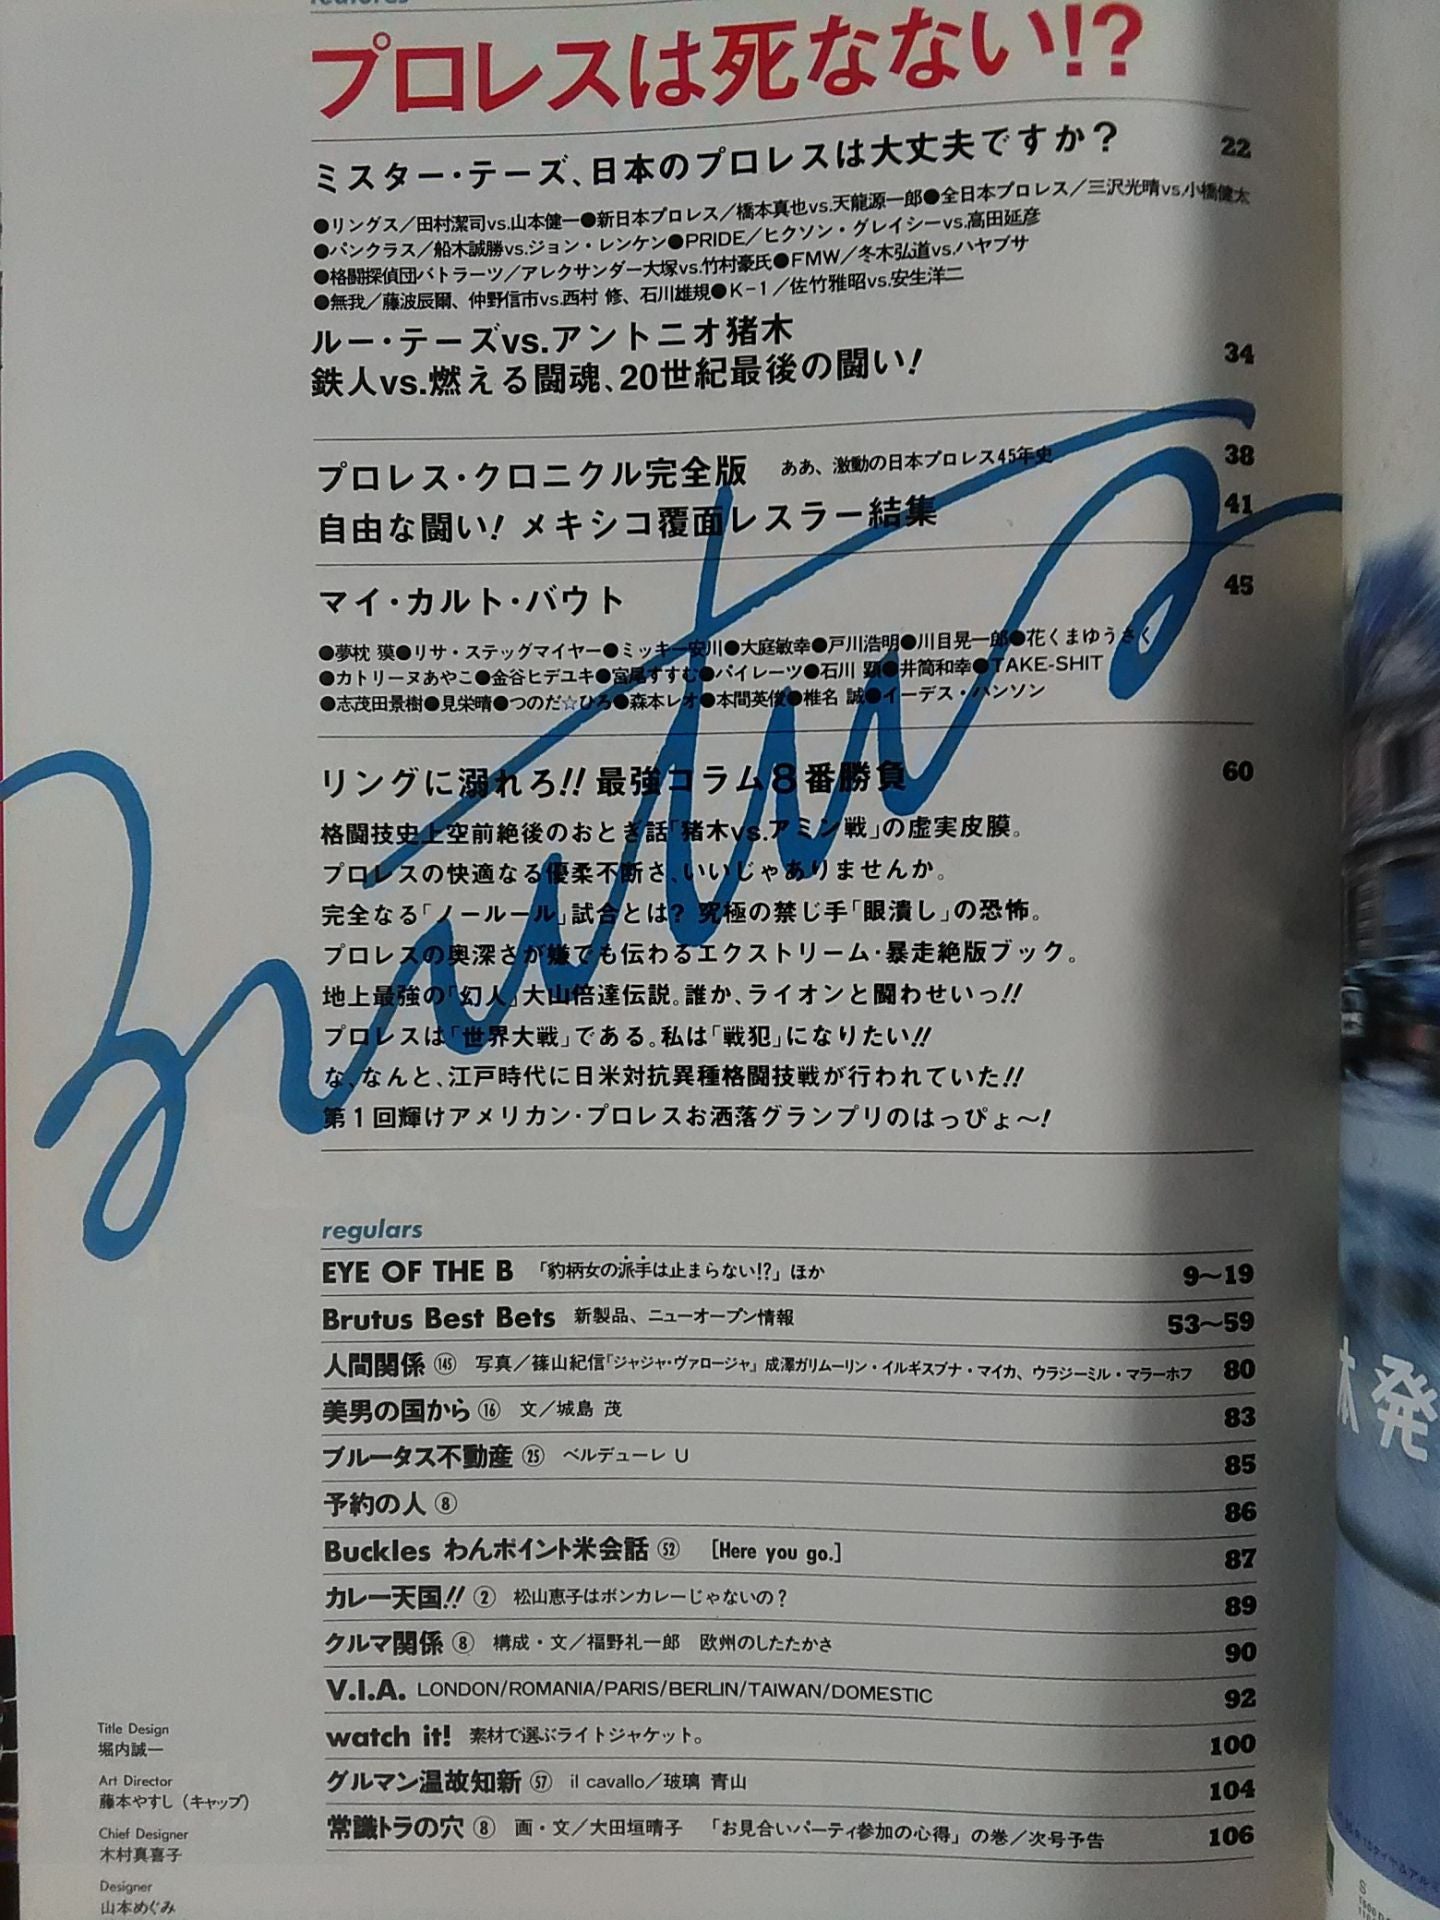 features
プロレスは死なない!?
ミスター・テーズ、日本のプロレスは大丈夫ですか？ 22
●リングス／田村潔司vs.山本健一●新日本プロレス／橋本真也vs.天龍源一郎●全日本プロレス／三沢光晴vs.小橋健太
●パンクラス／船木誠勝vs.ジョン・レンケン●PRIDE／ヒクソン・グレイシーvs.高田延彦
●格闘探偵団バトラーツ／アレクサンダー大塚vs.竹村豪氏●FMW／冬木弘道vs.ハヤブサ
●無我／藤波辰爾、仲野信市vs.西村 修、石川雄規●K-1／佐竹雅昭vs.安生洋二
ルー・テーズvs.アントニオ猪木
鉄人vs.燃える闘魂、20世紀最後の闘い! 34
プロレス・クロニクル完全版 ああ、激動の日本プロレス45年史 38
自由な闘い! メキシコ覆面レスラー結集 41
マイ・カルト・バウト 45
●夢枕 獏●リサ・ステッグマイヤー●ミッキー安川●大庭敏幸●戸川浩明●川目晃一郎●花くまゆうさく
●カトリーヌあやこ●金谷ヒデユキ●宮尾すすむ●パイレーツ●石川 顕●井筒和幸●TAKE-SHIT
●志茂田景樹●見栄晴●つのだ☆ひろ●森本レオ●本間英俊●椎名 誠●イーデス・ハンソン
Brutus
リングに溺れろ!! 最強コラム8番勝負 60
格闘技史上空前絶後のおとぎ話「猪木vs.アミン戦」の虚実皮膜。
プロレスの快適なる優柔不断さ、いいじゃありませんか。
完全なる「ノールール」試合とは? 究極の禁じ手「眼潰し」の恐怖。
プロレスの奥深さが嫌でも伝わるエクストリーム・暴走絶版ブック。
地上最強の「幻人」大山倍達伝説。誰か、ライオンと闘わせいっ!!
プロレスは「世界大戦」である。私は「戦犯」になりたい!!
な、なんと、江戸時代に日米対抗異種格闘技戦が行われていた!!
第1回輝けアメリカン・プロレスお洒落グランプリのはっぴょ～!
regulars
EYE OF THE B 「豹柄女の派手は止まらない!?」ほか 9～19
Brutus Best Bets 新製品、ニューオープン情報 53～59
人間関係 ⑭⑤ 写真／篠山紀信『ジャジャ・ヴァロージャ』成澤ガリムーリン・イルギスブナ・マイカ、ウラジーミル・マラーホフ 80
美男の国から ⑯ 文／城島 茂 83
ブルータス不動産 ㉕ ベルデューレ U 85
予約の人 ⑧ 86
Buckles わんポイント米会話 ㊾ [Here you go.] 87
カレー天国!! ② 松山恵子はボンカレーじゃないの？ 89
クルマ関係 ⑧ 構成・文／福野礼一郎 欧州のしたたかさ 90
V.I.A. LONDON/ROMANIA/PARIS/BERLIN/TAIWAN/DOMESTIC 92
watch it! 素材で選ぶライトジャケット。 100
グルマン温故知新 57 il cavallo／玻璃 青山 104
常識トラの穴 ⑧ 画・文／大田垣晴子 「お見合いパーティ参加の心得」の巻／次号予告 106
Title Design
堀内誠一
Art Director
藤本やすし（キャップ）
Chief Designer
木村真喜子
Designer
山本めぐみ
発